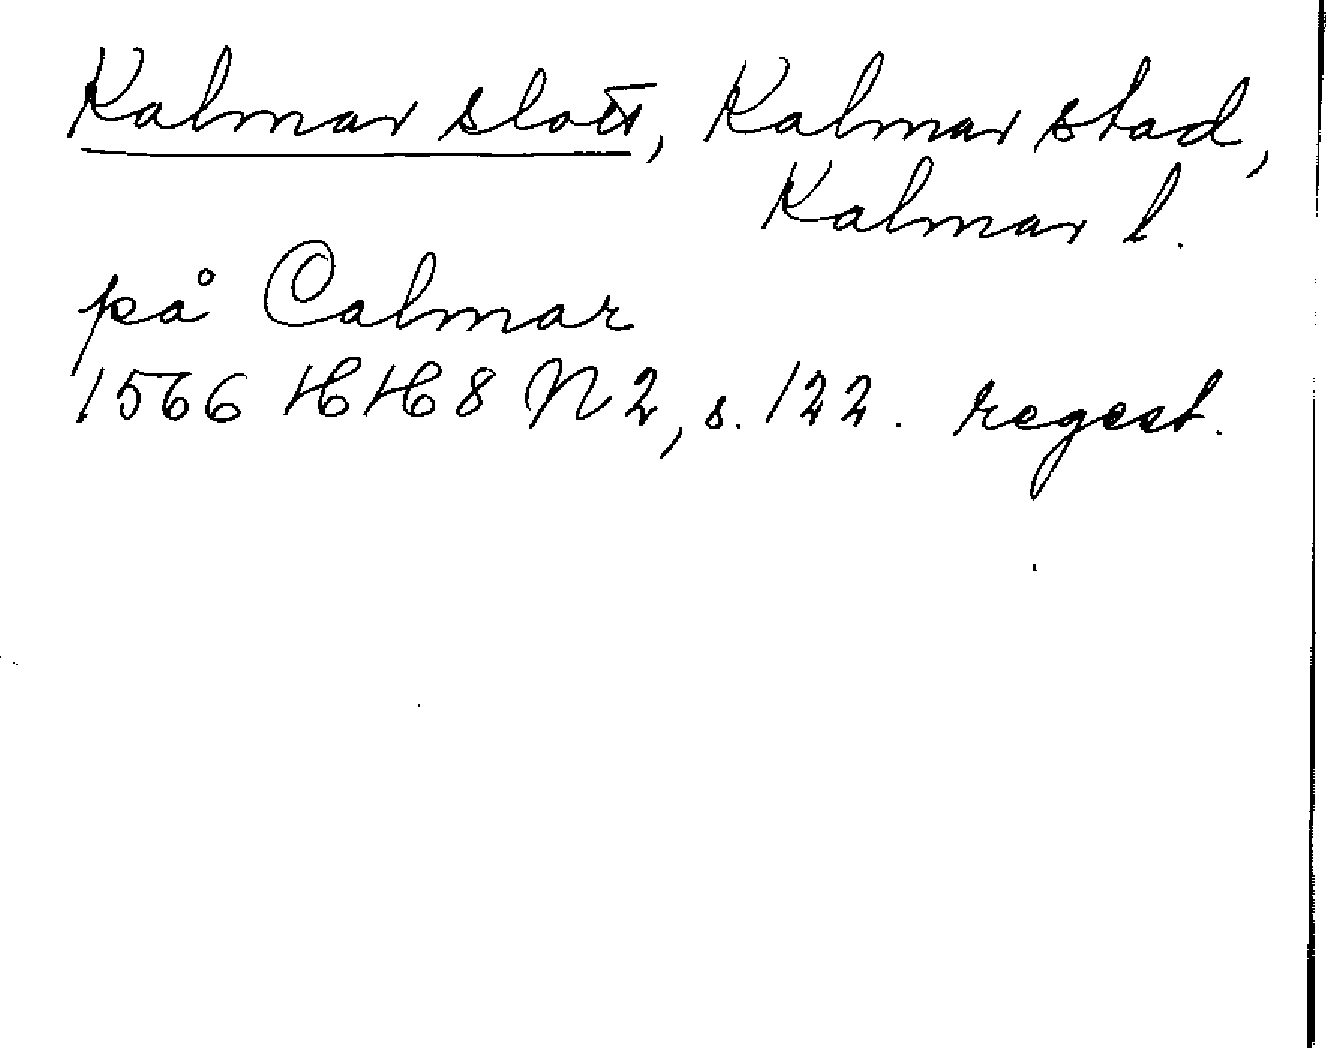 Kalmar slott, Kalmar stad,
Kalmar l.
på Calmar
1566 HH8 N2, s. 122. regest.